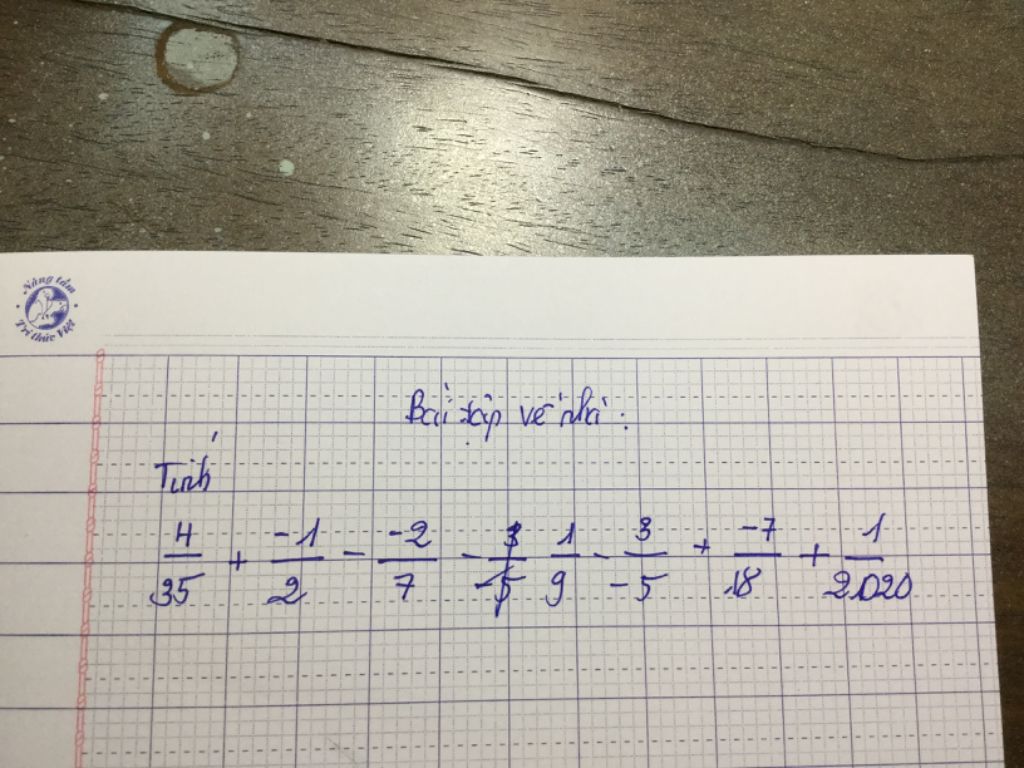 Nâng tầm
Tri thức Việt
Bài tập về nhà:
Tính
4/35 + -1/2 - -2/7 - 1/9 - 3/-5 + -7/18 + 1/2020